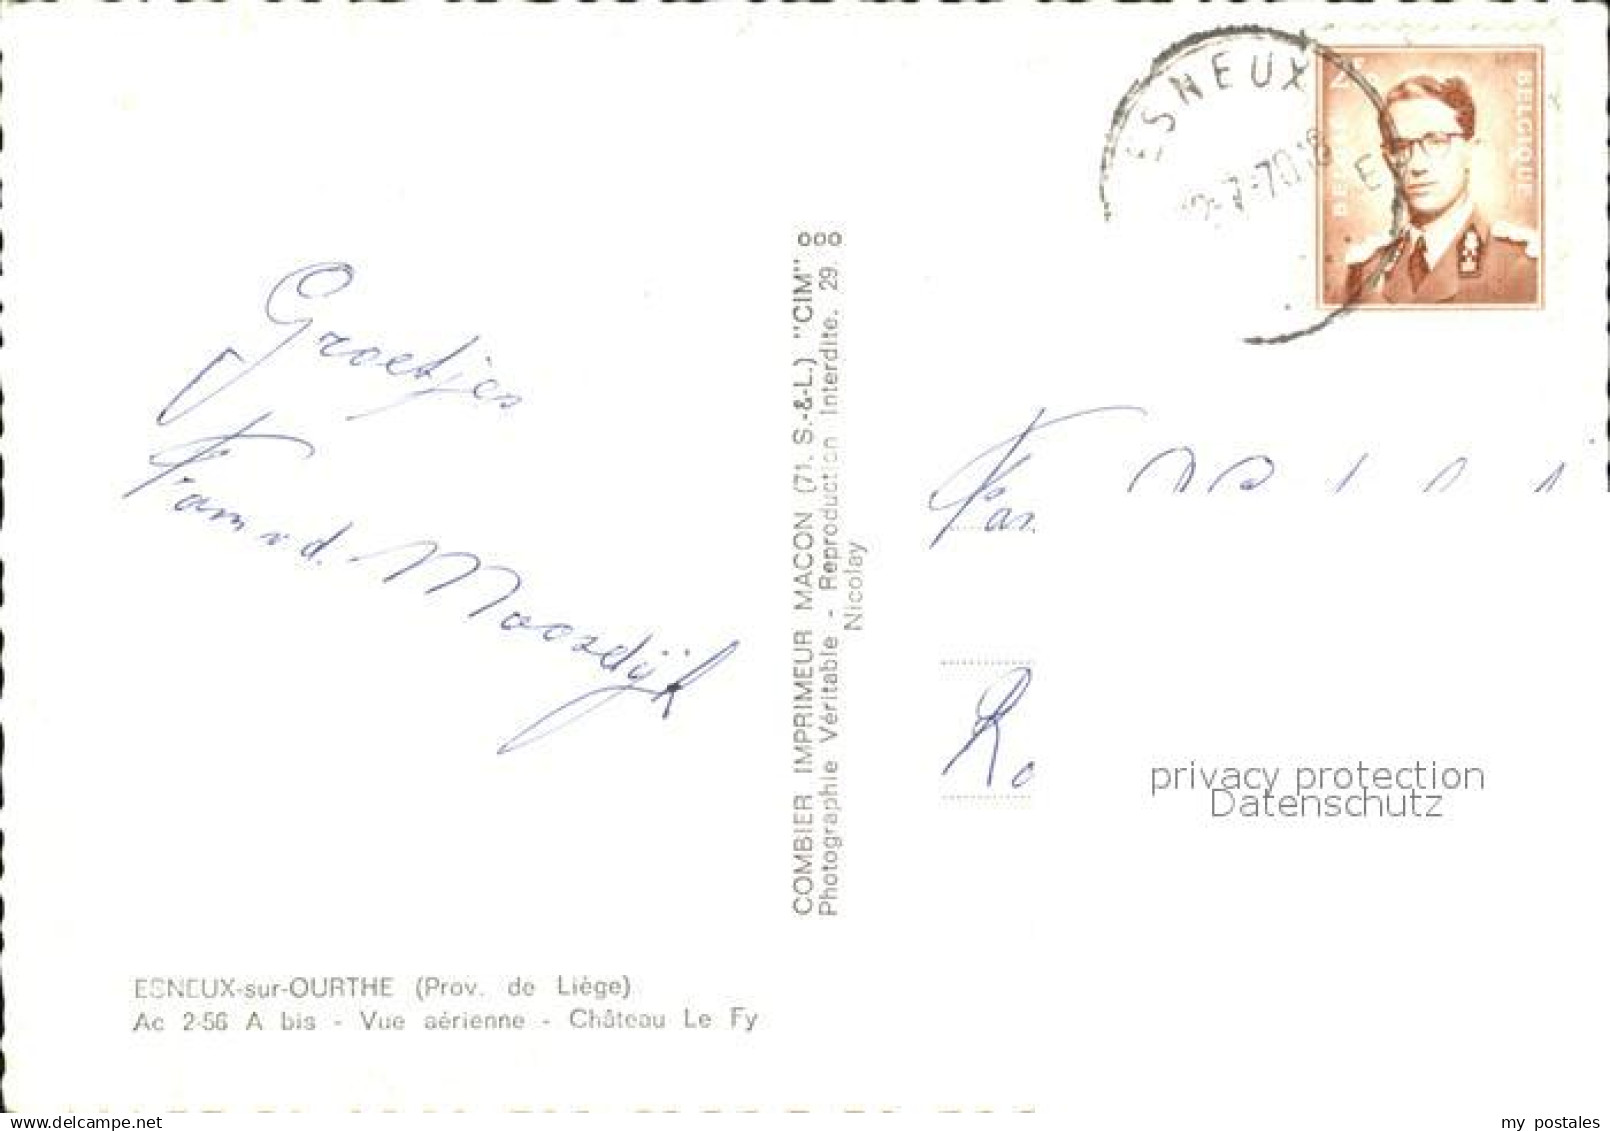 ESNEUX
BELGIQUE
Groetjes
Fam v.d. Moosdijk
COMBIER IMPRIMEUR MACON (71. S.-&-L.) "CIM"
Photographie Véritable - Reproduction Interdite. 29.
Nicolay
privacy protection
Datenschutz
ESNEUX-sur-OURTHE (Prov. de Liège)
Ac 2-56 A bis - Vue aérienne - Château Le Fy
my postales